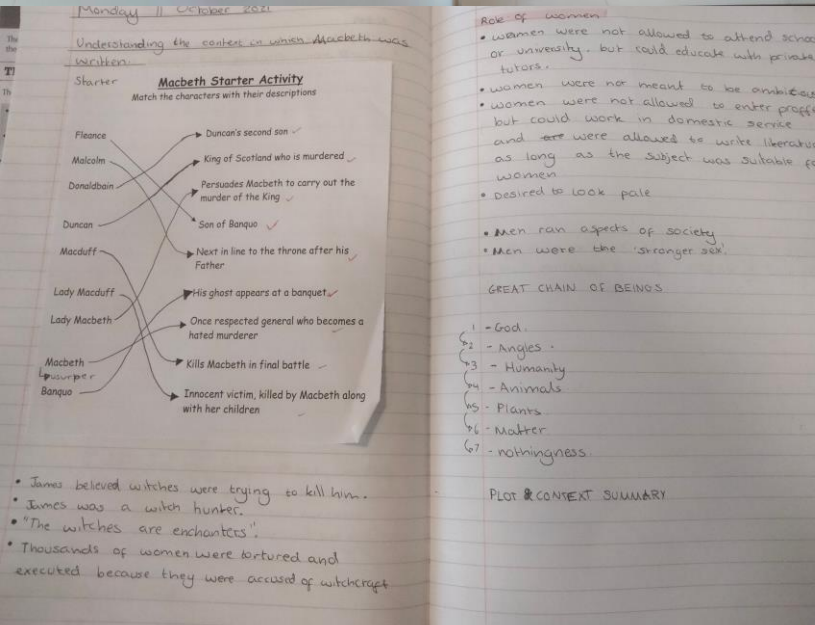 Monday 11 October 2021
Understanding the context in which Macbeth was
written.
Starter
Macbeth Starter Activity
Match the characters with their descriptions
Fleance
Malcolm
Donaldbain
Duncan
Macduff
Lady Macduff
Lady Macbeth
Macbeth
usurper
Banquo
Duncan's second son
King of Scotland who is murdered
Persuades Macbeth to carry out the
murder of the King
Son of Banquo
Next in line to the throne after his
Father
His ghost appears at a banquet
Once respected general who becomes a
hated murderer
Kills Macbeth in final battle
Innocent victim, killed by Macbeth along
with her children
• James believed witches were trying to kill him.
• James was a witch hunter.
• "The witches are enchanters".
• Thousands of women were tortured and
executed because they were accused of witchcraft
Role of women
• women were not allowed to attend schoo
or university, but could educate with private
tutors.
• women were not meant to be ambitious
• women were not allowed to enter proff
but could work in domestic service
and were allowed to write literatu
as long as the subject was suitable fo
women
• Desired to look pale
• Men ran aspects of society
• Men were the 'stronger sex'.
GREAT CHAIN OF BEINGS
1 - God.
2 - Angles.
3 - Humanity
4 - Animals
5 - Plants
6 - Matter
7 - nothingness.
PLOT & CONTEXT SUMMARY